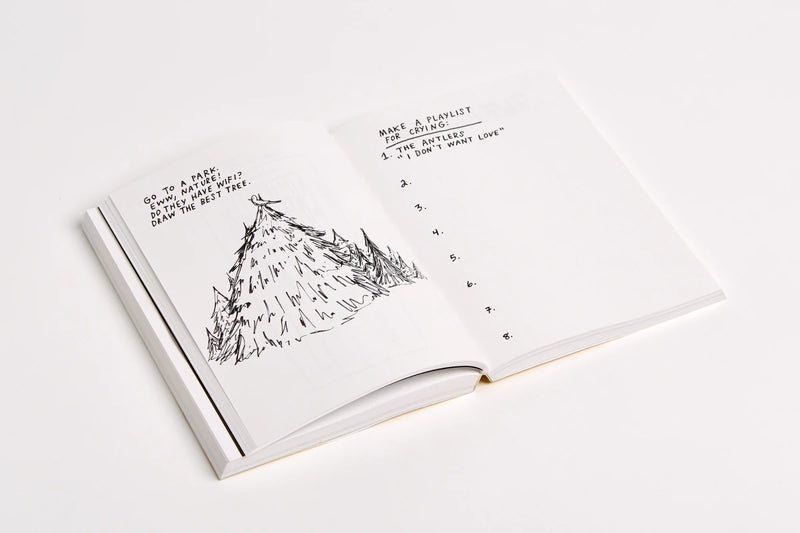 GO TO A PARK.
EWW, NATURE!
DO THEY HAVE WIFI?
DRAW THE BEST TREE.
MAKE A PLAYLIST
FOR CRYING:
1. THE ANTLERS
"I DON'T WANT LOVE"
2.
3.
4.
5.
6.
7.
8.